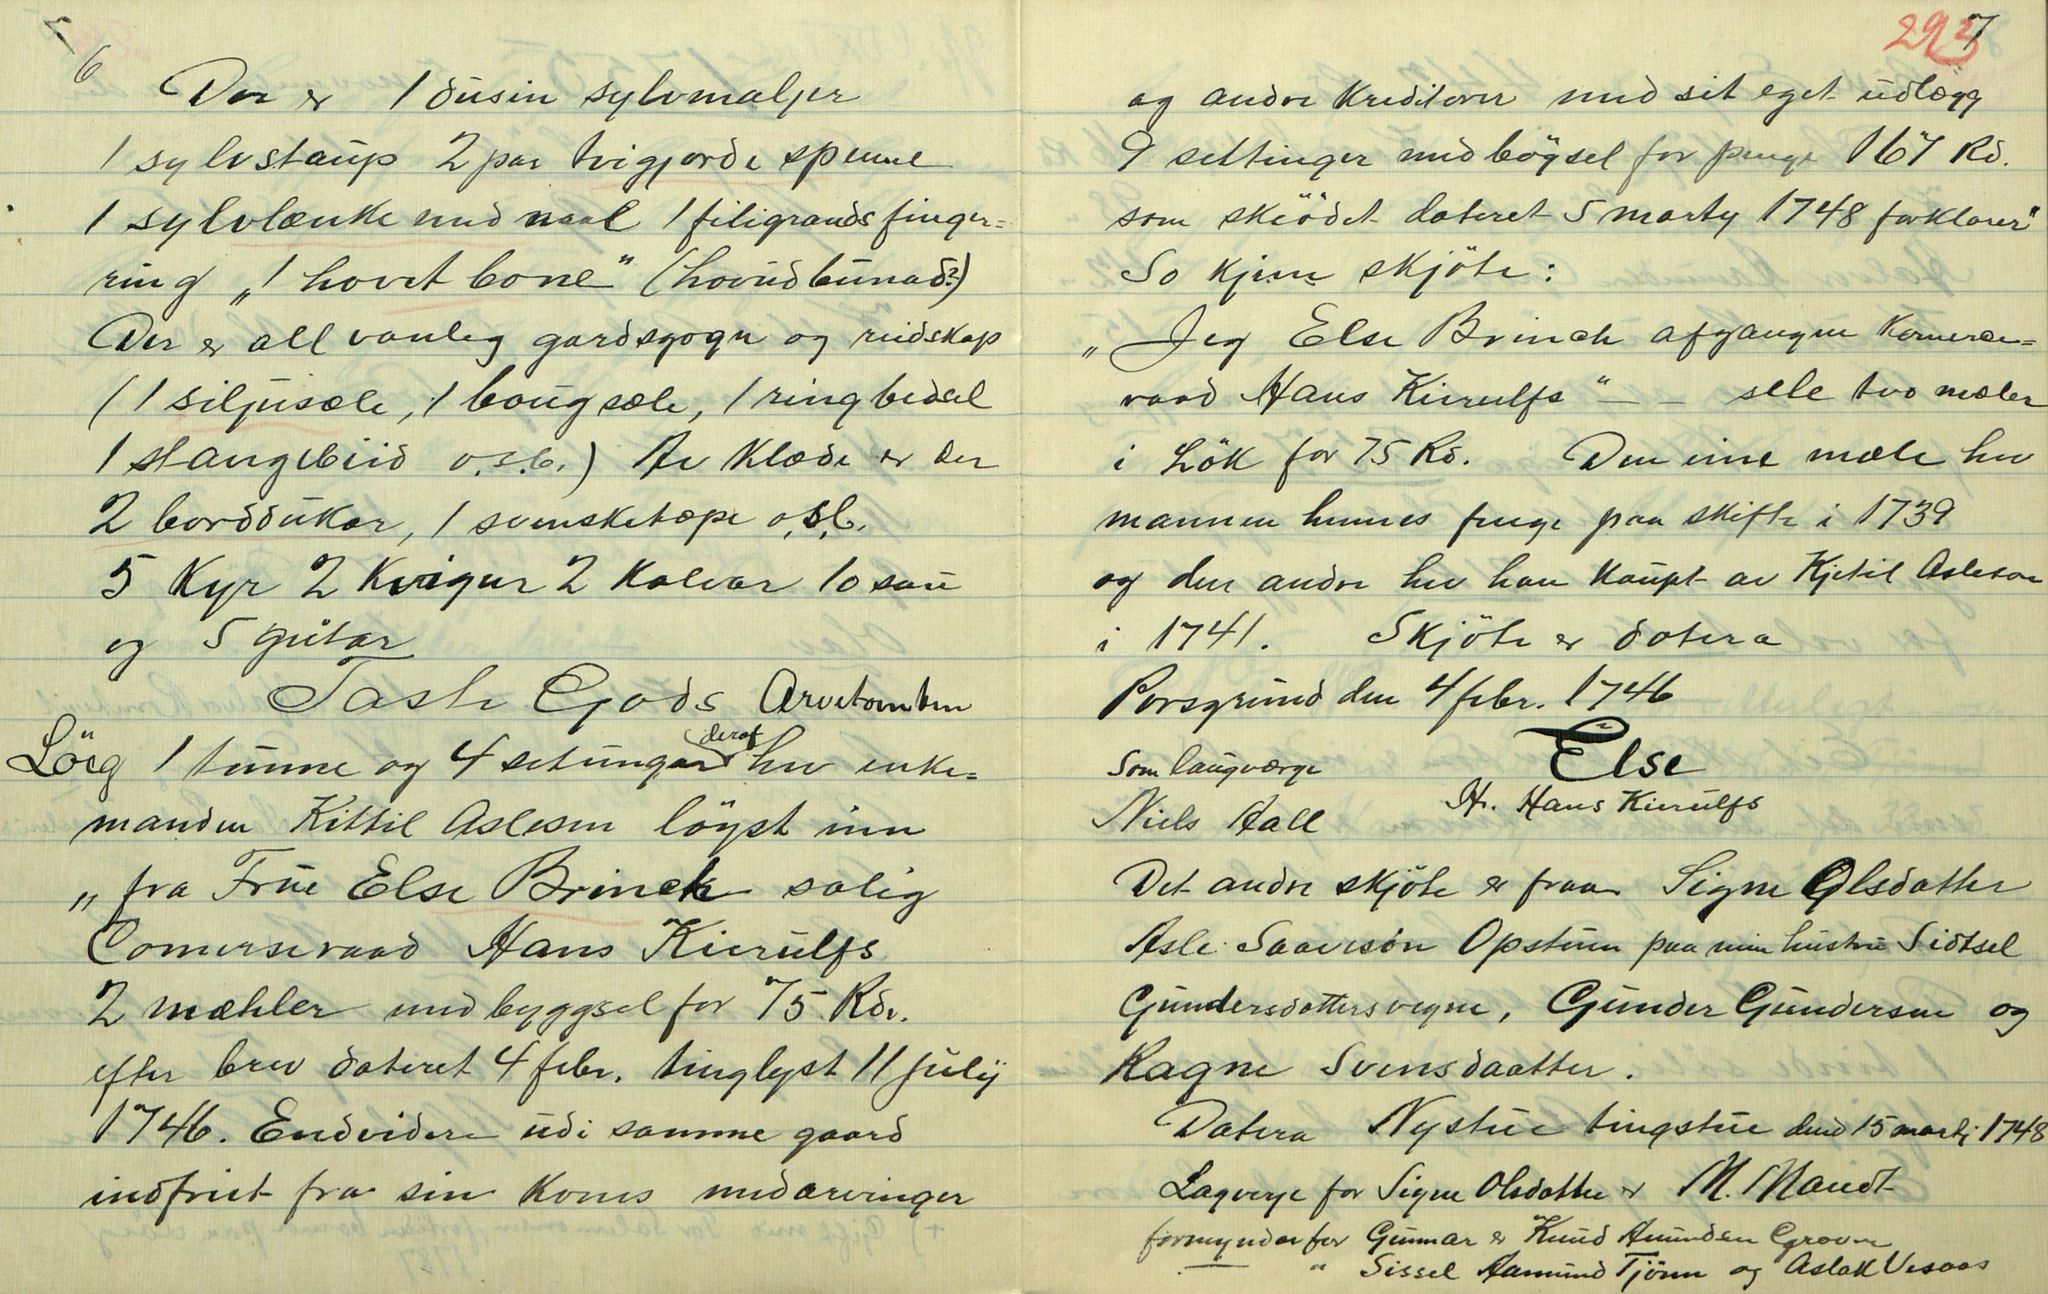 6
Der er 1 dusin sylvmaljer
1 sylvstaup 2 par tvigjorde spenne
1 sylvlænke med naal 1 filigrands finger=
ring „1 hovet bone" (hovudbunad?)
Der er all vanleg gardsgogn og reidskap
(1 siljusæle, 1 bougsæle, 1 ringbedsel
1 stangbiid o.s.b.) Av klæde er der
2 bordukar, 1 svensketæpe o.s.b.
5 Kyr 2 Kvigur 2 Kalvar 10 sau
og 5 gjitar
Faste Gods Arvetomten
Löeg 1 tunne og 4 setungar deraf hev enke=
manden Kittil Aslesen löyst inn
„fra Frue Else Brinck salig
Comerseraad Hans Kierulfs
2 mæhler med byggsel for 75 Rd.
efter brev dateret 4 febr. tinglyst 11 Julij
1746. Endvidere udi samme gaard
indfriet fra sin Kones medarvinger
293
7
og andre Kreditorer med sit eget udlægg
9 settinger med bögsel for penge 167 Rd.
som skiödet dateret 5 marty 1748 forklarer"
So kjem skjöte:
„Jeg Else Brinck afgangen Komerce=
raad Hans Kierulfs" — — sele two mæler
i Lök for 75 Rd. Den eine mæle hev
mannen hennes fenge paa skifte i 1739
og den andre hev han kaupt av Kjetil Asleson
i 1741. Skjöte er datera
Porsgrund den 4 febr. 1746
Som laugværge Else
Niels Aall Hr. Hans Kierulfs
Det andre skjöte er fraa Signe Olsdatter
Asle Saaveson Opstuen paa min hustru Sidsel
Gundersdatters vegne, Gunder Gundersen og
Ragne Svensdaatter.
Datera Nystue tingstue dend 15 martj 1748
Lagverje for Signe Olsdatter er M. Mandt
formyndar for Gunnar er Knud Amundsen Grovum
— " Sissel Aamund Tjönn og Aslak Vesaas